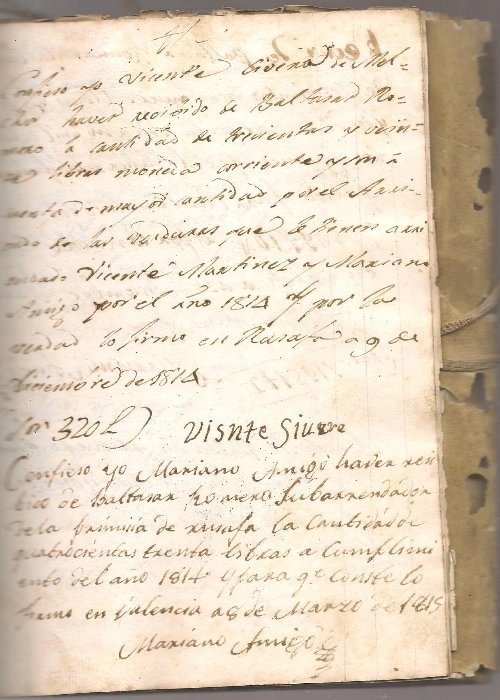 Confieso yo Vicente Siuera de Mel=
haver recivido de Baltasar Ro=
mero la cantidad de trecientas y vein=
te libras moneda corriente y son a
cuenta de mayor cantidad por el Arri
endo de las que le tienen arri
endado Vicente Martinez y Mariano
Amigo por el año 1814 y por la
verdad lo firmo en Rusafa a 9 de
Diciembre de 1814
Son 320 L
Visnte Siurre
Confieso yo Mariano Amigo haver reci
bido de Baltasar Romero Subarrendador
de la primisia de rusafa la Cantidad de
quatrocientas trenta libras a Cumplimi
ento del año 1814 y para qe Conste lo
firmo en Valencia a 8 de Marzo de 1815
Mariano Amigo